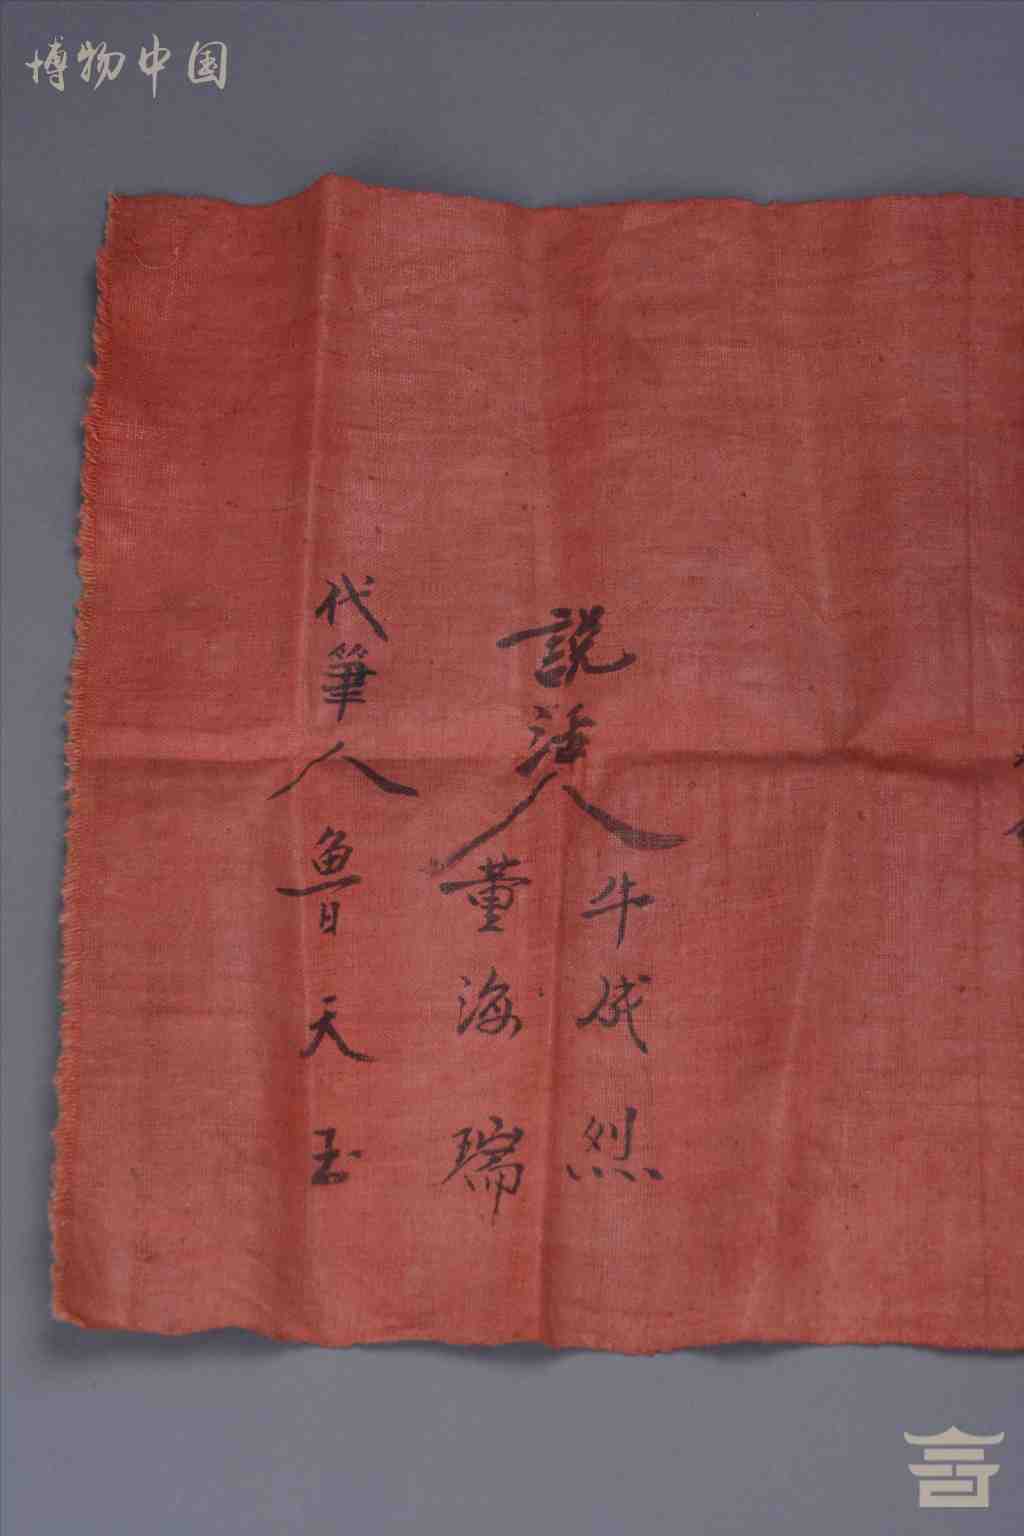 博物中国
説
話
人
牛成烈
董海瑞
代筆人魯天玉